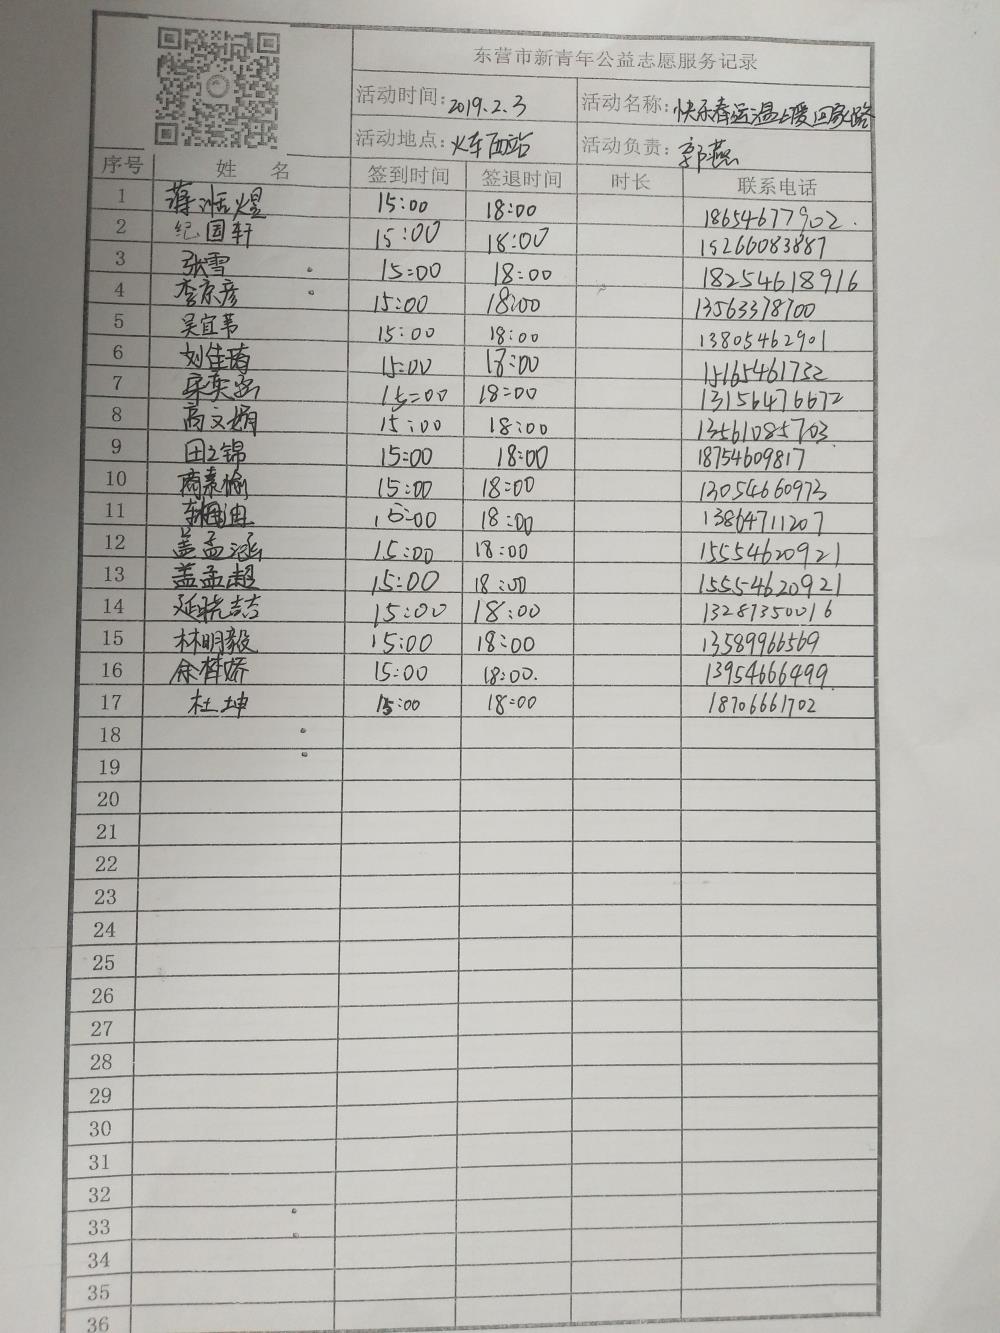 东营市新青年公益志愿服务记录
活动时间：2019.2.3 活动名称：快乐春运温暖回家路
活动地点：火车西站 活动负责：郭燕
序号 姓 名 签到时间 签退时间 时长 联系电话
1 15:00 18:00 18654677902
2 纪国轩 15:00 18:00 15266083887
3 张雪 15:00 18:00 18254618916
4 李京彦 15:00 18:00 13563378700
5 吴宜苇 15:00 18:00 13805462901
6 刘佳琦 15:00 18:00 15165461732
7 15:00 18:00 13156476672
8 高文娟 15:00 18:00 13561085703
9 田之锦 15:00 18:00 18754609817
10 商素愉 15:00 18:00 13054660973
11 15:00 18:00 13864711207
12 盖孟涵 15:00 18:00 15554620921
13 盖孟超 15:00 18:00 15554620921
14 延晓喆 15:00 18:00 13287350016
15 林明毅 15:00 18:00 13589966569
16 15:00 18:00 13954666499
17 杜坤 15:00 18:00 18706661702
18
19
20
21
22
23
24
25
26
27
28
29
30
31
32
33
34
35
36